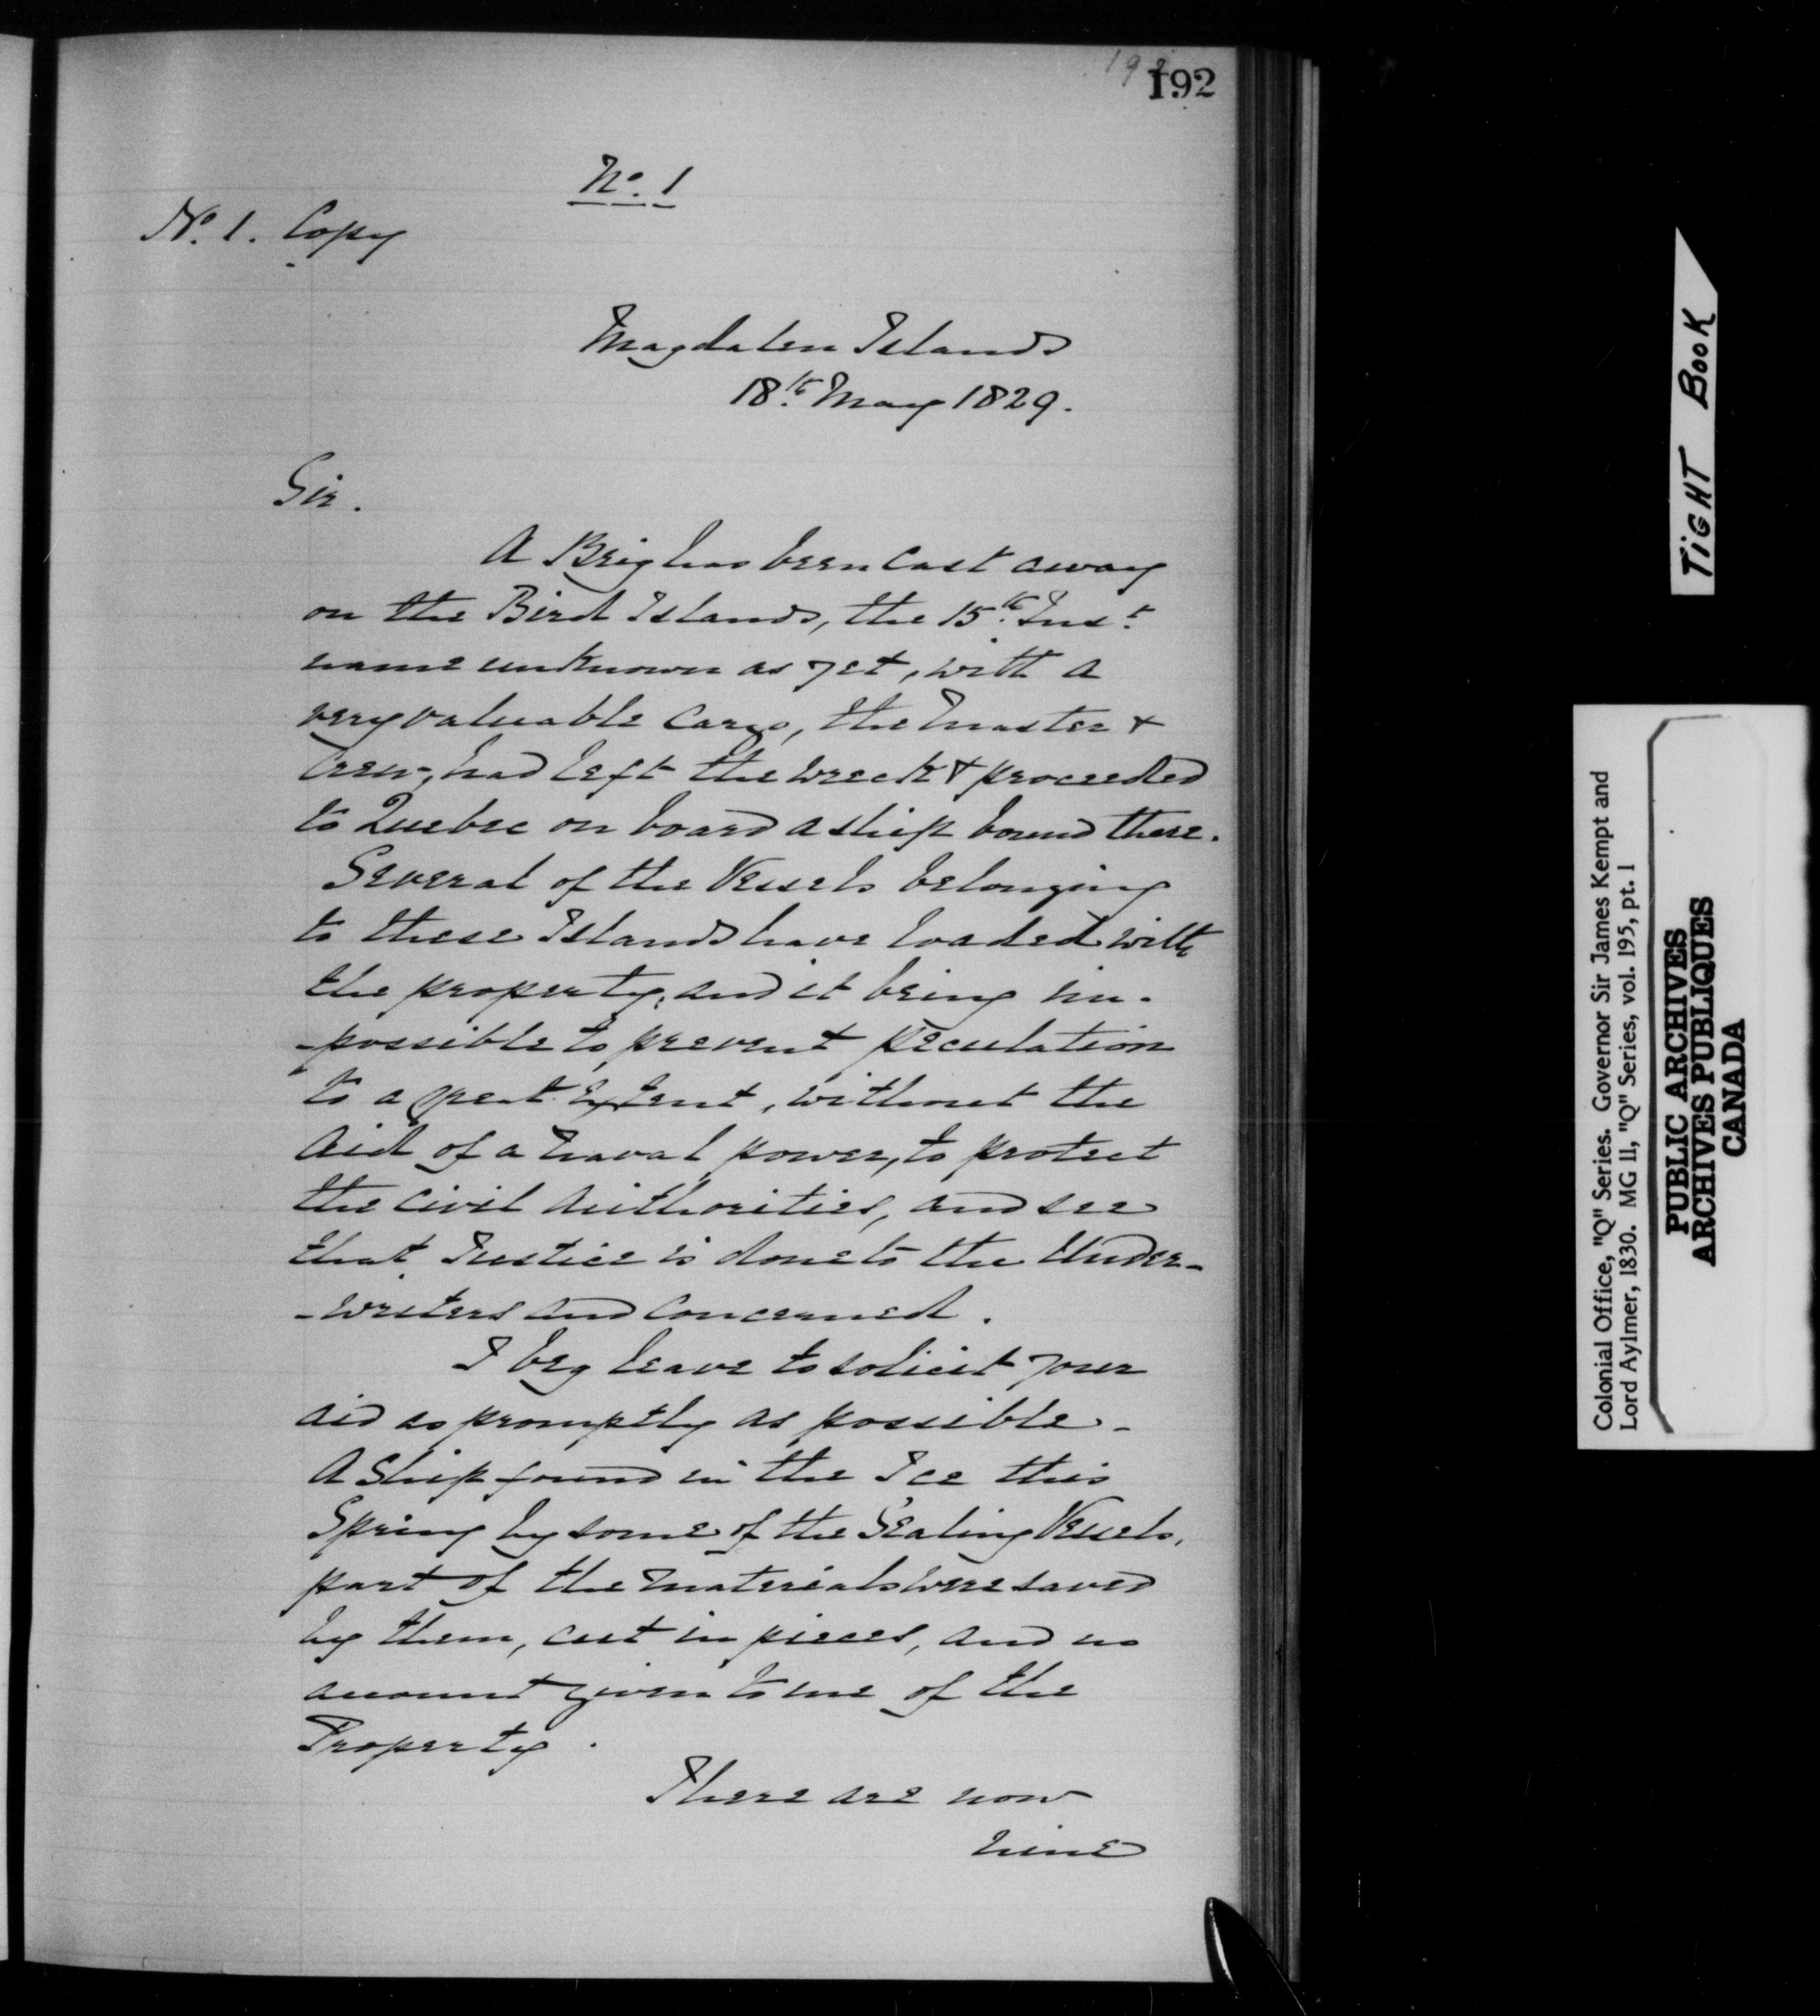 192
192
No. 1
No. 1. Copy
Magdalen Islands
18th May 1829.
Sir.
A Brig has been cast away
on the Bird Islands, the 15th Inst.
name unknown as yet, with a
very valuable cargo, the Master &
Crew, had left the wreck & proceeded
to Quebec on board a ship bound there.
Several of the Vessels belonging
to these Islands have loaded with
the property, and it being im-
-possible to prevent peculation
to a great extent, without the
aid of a Naval power, to protect
the civil authorities, and see
that Justice is done to the Under-
-writers and concerned.
I beg leave to solicit your
aid as promptly as possible -
A Ship found in the Ice this
Spring by some of the Sealing Vessels,
part of the Materials were saved
by them, cut in pieces, and no
account given to me of the
Property.
There are now
nine
TIGHT BOOK
Colonial Office, "Q" Series. Governor Sir James Kempt and
Lord Aylmer, 1830. MG 11, "Q" Series, vol. 195, pt. 1
PUBLIC ARCHIVES
ARCHIVES PUBLIQUES
CANADA